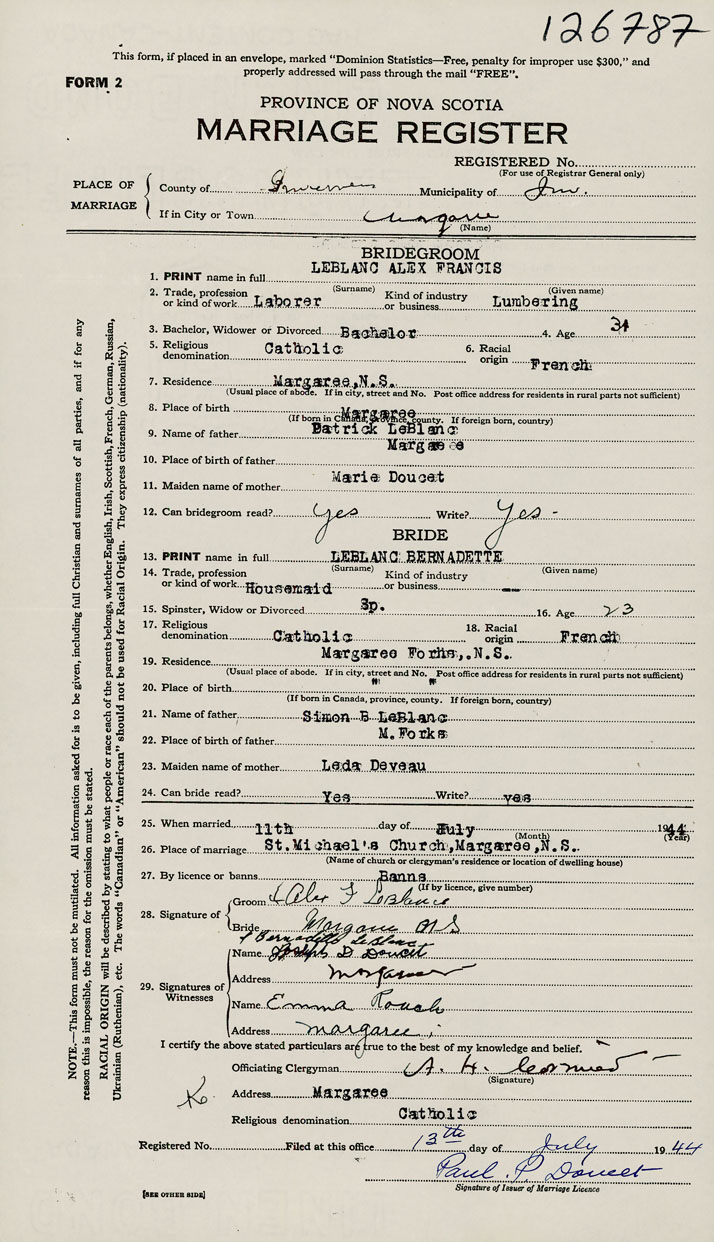 126787
This form, if placed in an envelope, marked "Dominion Statistics—Free, penalty for improper use $300," and
properly addressed will pass through the mail "FREE".
FORM 2
PROVINCE OF NOVA SCOTIA
MARRIAGE REGISTER
REGISTERED No.
(For use of Registrar General only)
PLACE OF MARRIAGE
County of Inverness Municipality of Inv.
If in City or Town Margaree
(Name)
BRIDEGROOM
LEBLANC ALEX FRANCIS
1. PRINT name in full
(Surname) (Given name)
2. Trade, profession or kind of work Laborer Kind of industry or business Lumbering
3. Bachelor, Widower or Divorced Bachelor 4. Age 34
5. Religious denomination Catholic 6. Racial origin French
7. Residence Margaree,N.S.
(Usual place of abode. If in city, street and No. Post office address for residents in rural parts not sufficient)
8. Place of birth Margaree
(If born in Canada, province, county. If foreign born, country)
9. Name of father Patrick LeBlanc
Margaree
10. Place of birth of father
11. Maiden name of mother Marie Doucet
12. Can bridegroom read? Yes Write? Yes -
BRIDE
13. PRINT name in full LEBLANC BERNADETTE
(Surname) (Given name)
14. Trade, profession or kind of work Housemaid Kind of industry or business --
15. Spinster, Widow or Divorced Sp. 16. Age 23
17. Religious denomination Catholic 18. Racial origin French
Margaree Forks,.N.S.
19. Residence
(Usual place of abode. If in city, street and No. Post office address for residents in rural parts not sufficient)
20. Place of birth " "
(If born in Canada, province, county. If foreign born, country)
21. Name of father Simon B LeBlanc
M.Forks
22. Place of birth of father
23. Maiden name of mother Leda Deveau
24. Can bride read? Yes Write? yes
25. When married 11th day of July 1944
(Month) (Year)
26. Place of marriage St.Michael's Church,Margaree,N.S.
(Name of church or clergyman's residence or location of dwelling house)
27. By licence or banns Banns
(If by licence, give number)
28. Signature of
Groom Alex F LeBlanc
Bride Margaree N S
Bernadette LeBlanc
29. Signatures of Witnesses
Name Joseph D Doucet
Address Margaree
Name Emma Roach
Address Margaree
I certify the above stated particulars are true to the best of my knowledge and belief.
Officiating Clergyman A. H. Cormier
(Signature)
Address Margaree
Religious denomination Catholic
Registered No. Filed at this office 13th day of July 1944
Paul P. Doucet
Signature of Issuer of Marriage Licence
[SEE OTHER SIDE]
NOTE.—This form must not be mutilated. All information asked for is to be given, including full Christian and surnames of all parties, and if for any
reason this is impossible, the reason for the omission must be stated.
RACIAL ORIGIN will be described by stating to what people or race each of the parents belongs, whether English, Irish, Scottish, French, German, Russian,
Ukrainian (Ruthenian), etc. The words "Canadian" or "American" should not be used for Racial Origin. They express citizenship (nationality).